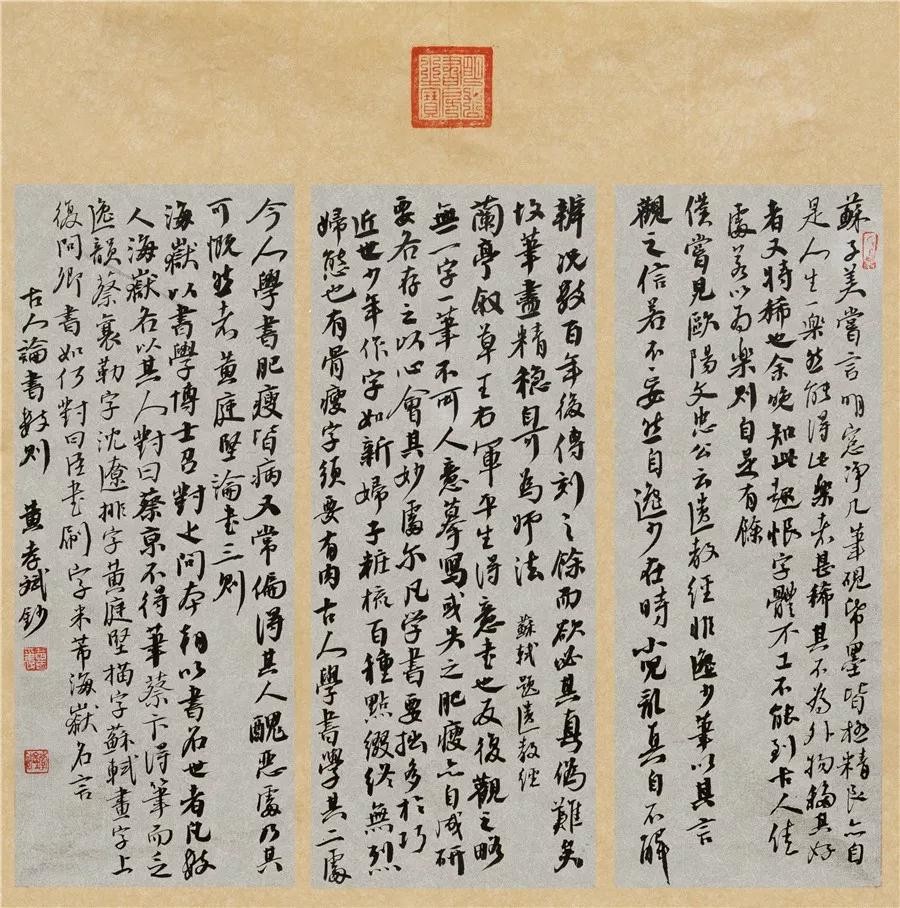 蘇子美嘗言明窓净几筆硯帋墨皆極精良亦自
是人生一樂然能得此樂者甚稀其不為外物移其好
者又特稀也余晚知此趣恨字體不工不能到古人佳
處若以為樂則自是有餘
僕嘗見歐陽文忠公云遺教經非逸少筆以其言
觀之信若不妄然自逸少在時小兒亂真自不解
辨况數百年後傳刻之餘而欲必其真偽難矣
故筆畫精穩自可為師法 蘇軾題遺教經
蘭亭敘草王右軍平生得意書也反復觀之略
無一字一筆不可人意摹寫或失之肥瘦亦自成妍
要各存之以心會其妙處尔凡学書要拙多於巧
近世少年作字如新婦子粧梳百種點綴終無烈
婦態也有骨瘦字須要有肉古人學書學其二處
今人學書肥瘦皆病又常偏得其人醜惡處乃其
可慨然者黃庭堅論書三則
海嶽以書學博士召對上問本朝以書名世者凡數
人海嶽各以其人對曰蔡京不得筆蔡卞得筆而乏
逸韻蔡襄勒字沈遼排字黃庭堅描字蘇軾畫字上
復問卿書如何對曰臣書刷字米芾海嶽名言
古人論書數則 黃孝斌鈔